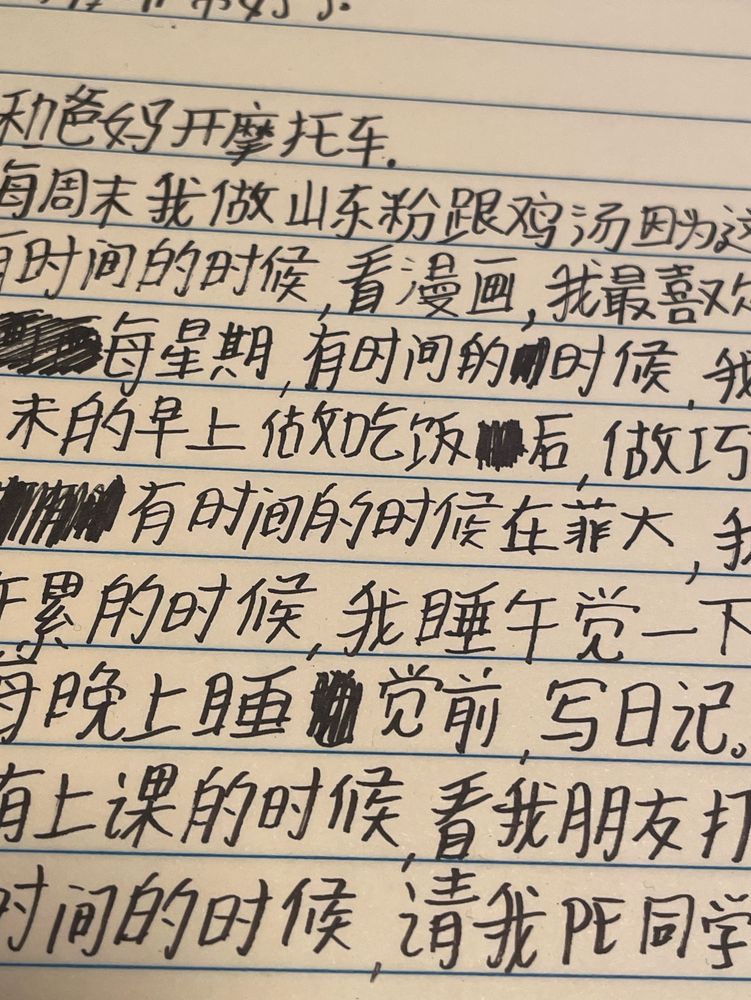 和爸妈开摩托车.
每周末我做山东粉跟鸡汤因为这
有时间的时候,看漫画,我最喜欢
每星期,有时间的时候,我
末的早上做吃饭后,做巧
有时间的时候在菲大,我
累的时候,我睡午觉一下
每晚上睡觉前,写日记。
有上课的时候,看我朋友打
时间的时候,请我PE同学